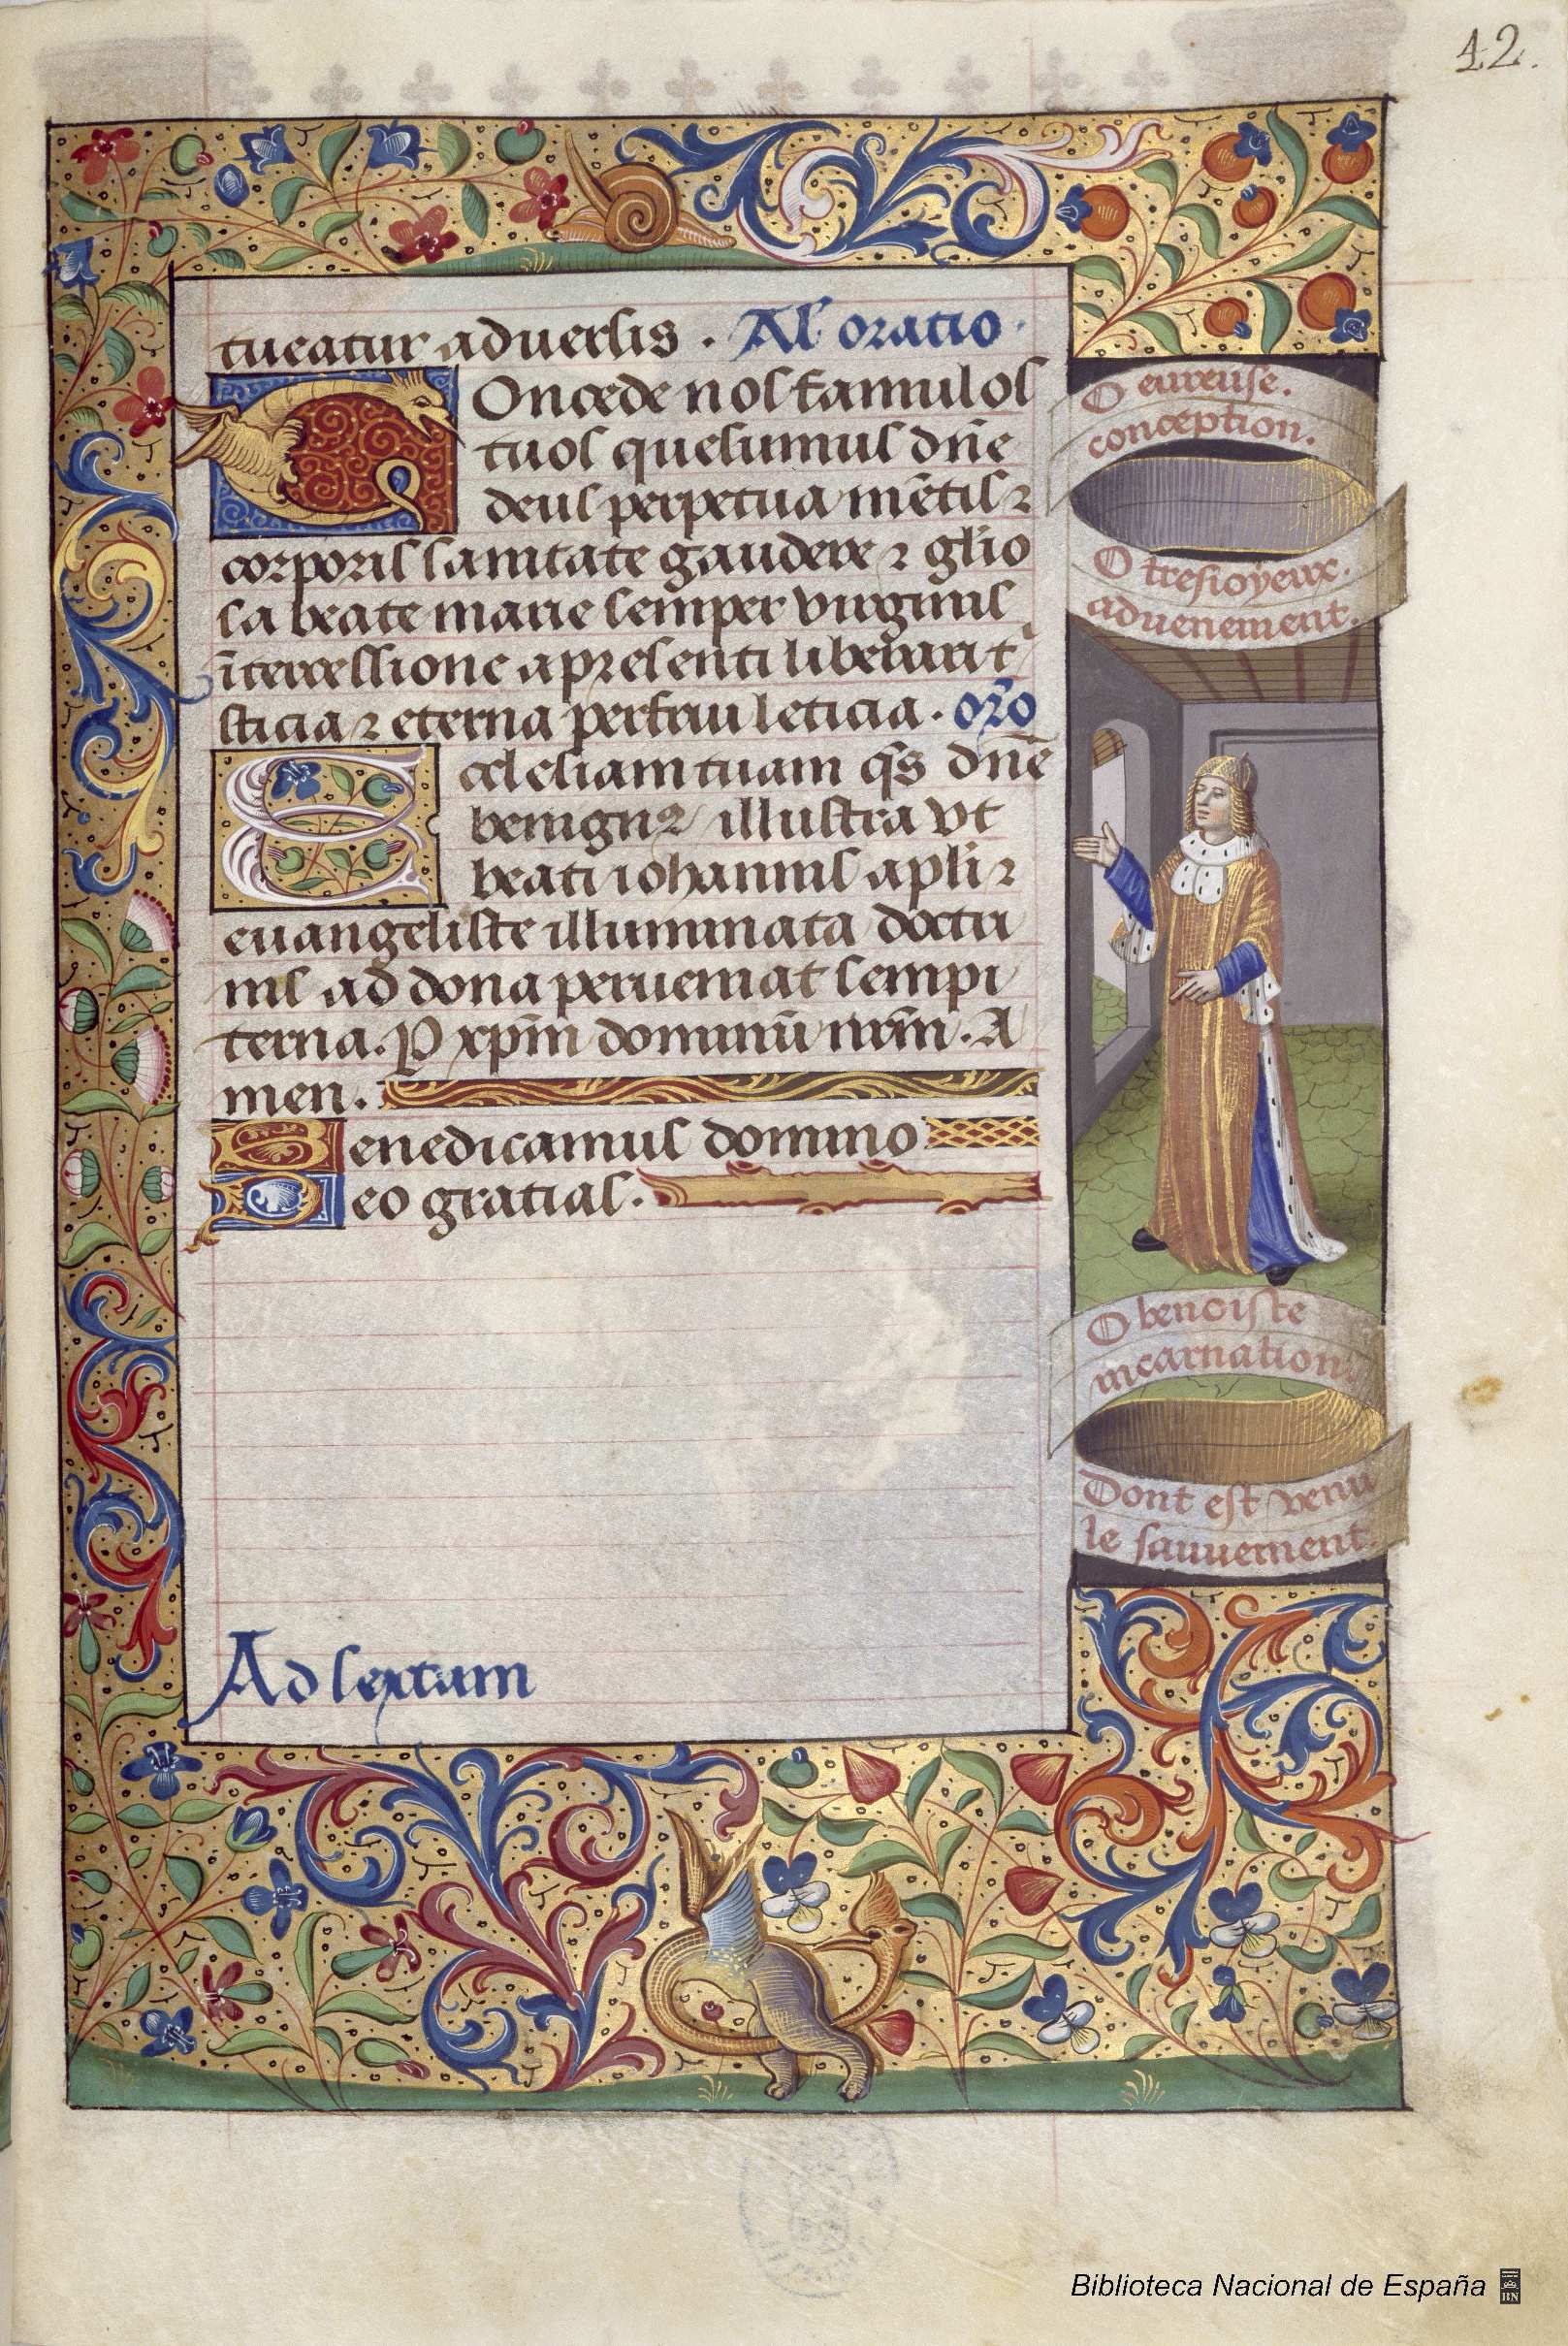 42.
tueatur aduersis. Al' oratio.
COncede nos famulos
tuos quesumus dn̄e
deus perpetua mētis ⁊
corporis sanitate gaudere ⁊ glio
sa beate marie semper virginis
ītercessione a presenti liberari t
sticia ⁊ eterna perfrui leticia. oro
Ecclesiam tuam qs dn̄e
benignus illustra vt
beati iohannis apl'i ⁊
euangeliste illuminata doctri
nis ad dona perueniat sempi
terna. P xp̄m dominū nrm̄. A
men.
Benedicamus domino
Deo gratias.
Ad sextam
O eureuse.
conception.
O tresioyeux.
aduenement.
O benoiste
incarnation
Dont est venu
le sauuement.
Biblioteca Nacional de España
BN